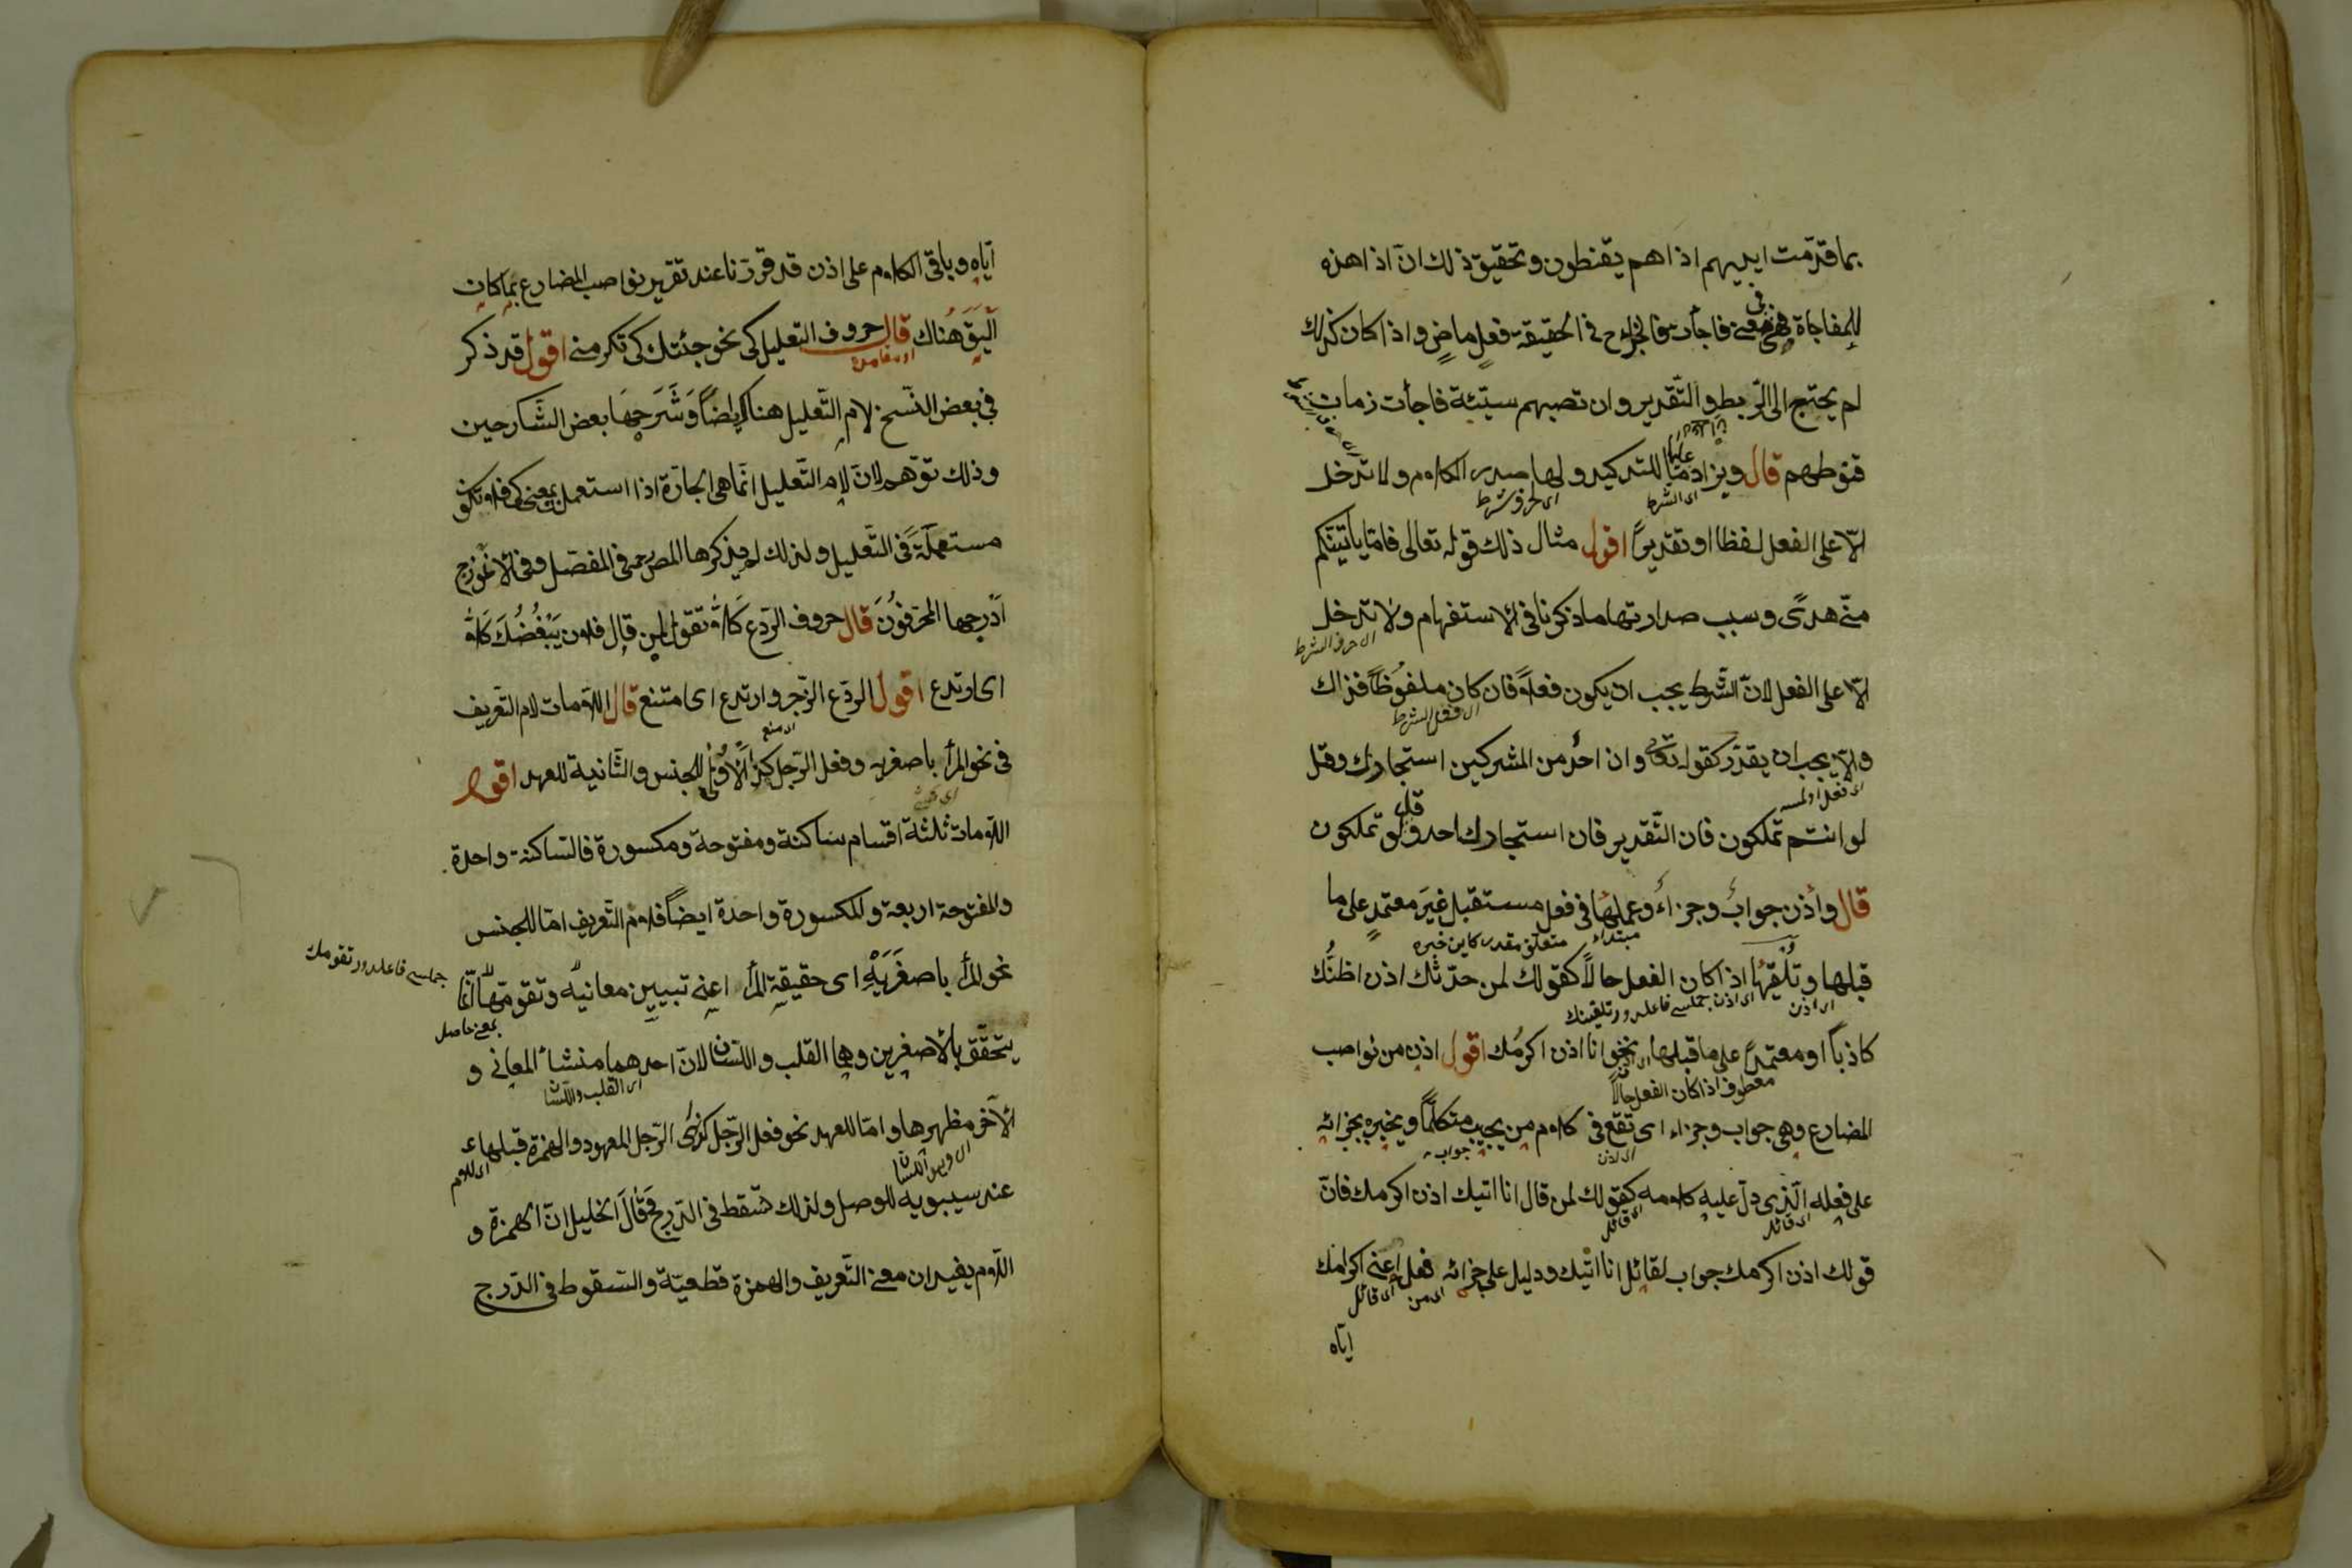 بما قدّمت ايديهم اذا هم يقنطون وتحقيق ذلك انّ اذا هذه
للمفاجاة فهى فى معنى فاجأت فالجزاء ح فى الحقيقة فعل ماضٍ واذا كان كذلك
لم يحتج الى الرّبط والتّقدير وان تصبهم سيّئة فاجأت زمان
قنوطهم قال ويزاد عليها ما للتاكيد ولها صدر الكلام ولا تدخل
اى الشرط
اى لحرف شرط
الّا على الفعل لفظا او تقديرًا اقول مثال ذلك قوله تعالى فامّا يأتينّكم
منّى هدًى وسبب صدارتها ما ذكرنا فى الاستفهام ولا تدخل
اى حرف الشرط
الّا على الفعل لانّ الشّرط يجب ان يكون فعلاً فان كان ملفوظاً فذاك
اى فعل الشرط
والّا يجب ان يقدّر كقوله تعالى وان احدٌ من المشركين استجارك وقل
لو انتم تملكون فان التّقدير فان استجارك احد وقل لو تملكون
قال وأذن جوابٌ وجزاءٌ وعملها فى فعل مستقبل غيرَ معتمدٍ على ما
مبتداء
متعلق مقدر كاين خبره
قبلها وتُلقيها اذا كان الفعل حالاً كقولك لمن حدّثك اذن اظنُّك
اى اذن
كاذباً او معتمدً على ما قبلها نحو انا اذن اكرمُك اقول اذن من نواصب
معطوف اذا كان الفعل حالاً
المضارع وهى جواب وجزاء اى تقع فى كلام من يجيب متكلّماً ويخبره بجزائه
اى اذن
جواب
على فعله الّذى دلّ عليه كلامه كقولك لمن قال انا اتيك اذن اكرمك فانّ
اى قائل
اى قائل
قولك اذن اكرمك جواب لقائل انا اتيك ودليل على جزائه فعل اعنى اكرامك
اى من
اى قائل
ايّاه
ايّاه وباقى الكلام على اذن قد قرّرنا عند تقرير نواصب المضارع بما كان
أليَقَ هُناك قال حروف التعليل كى نحو جئتك كى تكرمنى اقول قد ذكر
فى بعض النّسخ لام التّعليل هناك ايضاً وشَرَحها بعض الشّارحين
وذلك توّهم لانّ لام التّعليل انّما هى الجارّة اذا استعمل بمعنى كى فلا تكون
مستعملةً فى التّعليل ولذلك لم يذكرها المص رح فى المفصّل وفى الانموذج
أدرجها المحرّفُونَ قال حروف الرّدع كَلاّ تقول لمن قال فلان يَبْغُضُكَ كلاّ
اى ارتدع اقول الردّع الزّجر وارتدع اى امتنع قال اللاّمات لام التّعريف
اى منع
فى نحو المرأ باصغريه وفعل الرّجل كذا الأولى للجنس والثّانية للعهد اقول
اللاّمات ثلثة اقسام ساكنة ومفتوحة ومكسورة فالسّاكنة واحدة
والمفتوحة اربعة والمكسورة واحدة ايضاً فلام التّعريف امّا للجنس
نحو المرأ باصغَرَيْهِ اى حقيقة المرأ اعنى تبيين معانيه وتقوّمها انّما
بمعنى حاصل
يتحقّق بالاصغرين وهما القلب واللّسان لانّ احدهما منشأ المعانى و
اى القلب واللّسان
الآخر مظهرها وامّا للعهد نحو فعل الرّجل كذا اى الرّجل المعهود والهمزة قبلها
اى لام
عند سيبويه للوصل ولذلك تسقط فى الدّرج وقالَ الخليل انّ الهمزة و
اللاّم يفيدان معنى التّعريف والهمزة قطعيّة والسّقوط فى الدّرج